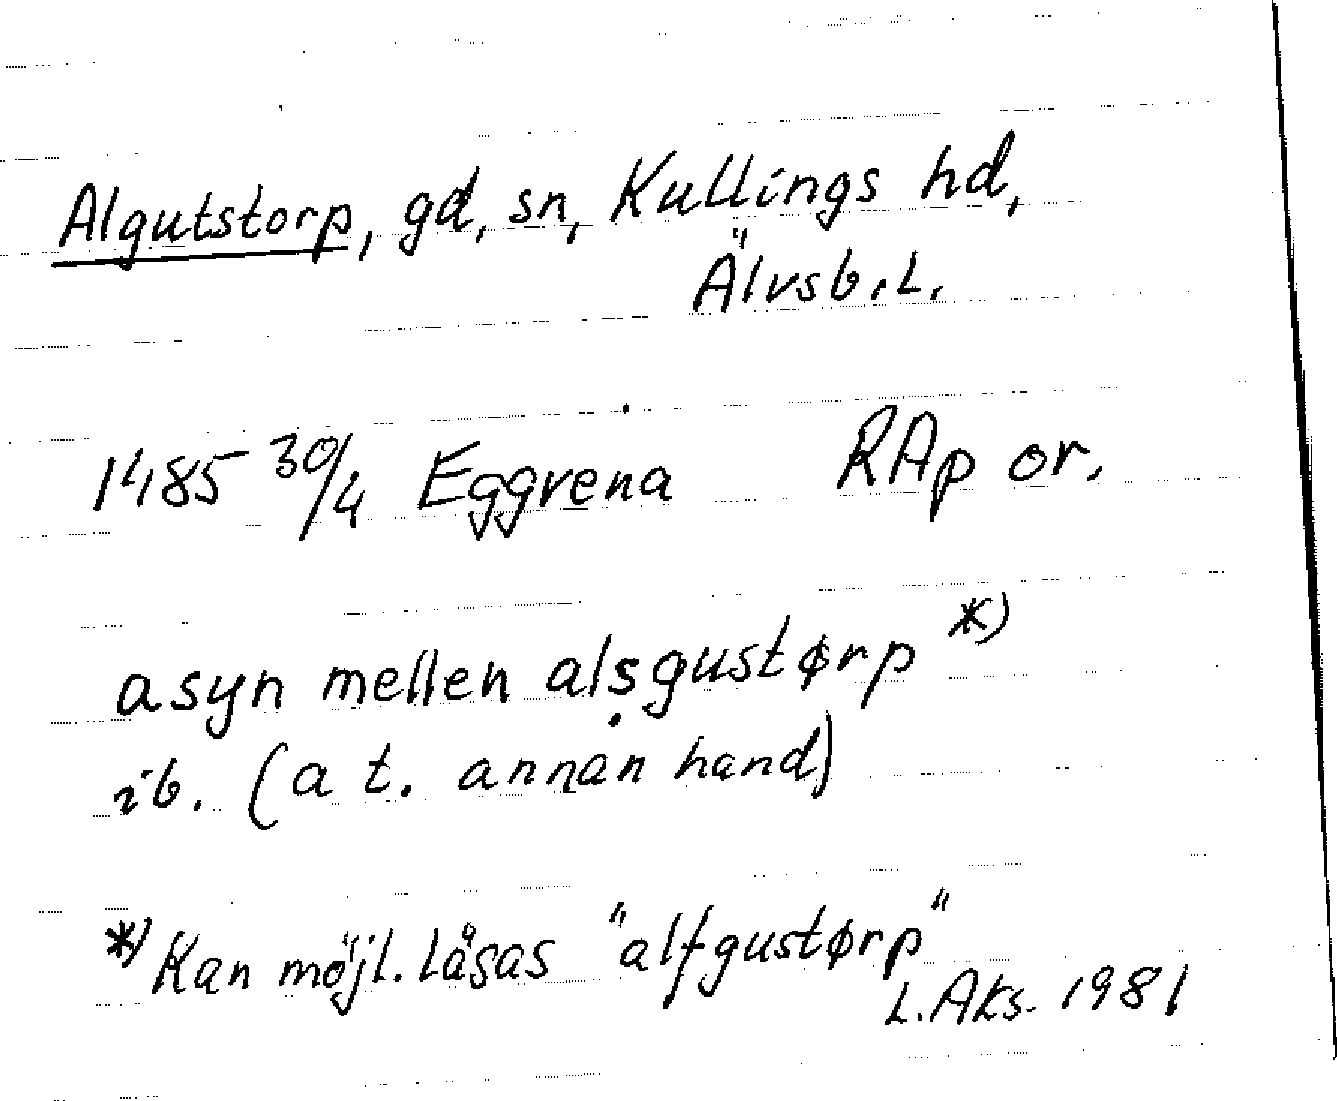 Algutstorp, gd, sn, Kullings hd,
Älvsb. L.
1485 30/4 Eggvena RAp or.
asyn mellen alṣgustørp *)
ib. (a t. annan hand)
*) Kan möjl. låsas "alfgustørp"
L. Aks. 1981